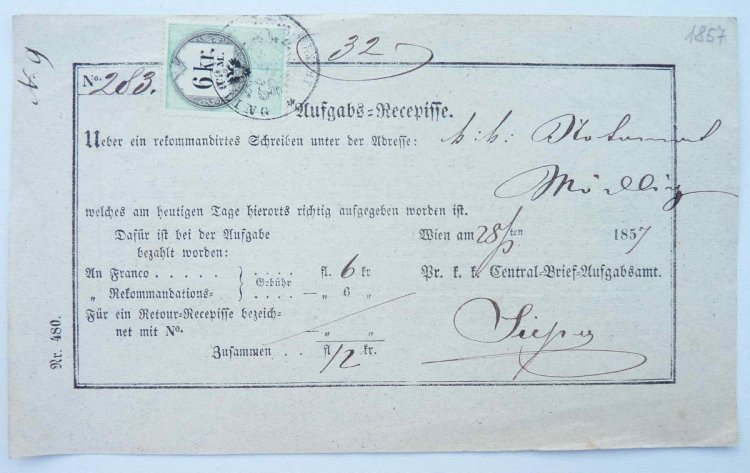 1857
32
N. 9
No. 283.
6 kr.
C.M.
Aufgabs=Recepisse.
Ueber ein rekommandirtes Schreiben unter der Adresse: k: k: Notariat
Mödling
welches am heutigen Tage hierorts richtig aufgegeben worden ist.
Dafür ist bei der Aufgabe
bezahlt worden:
Wien am 28/ten 1857
An Franco . . . . . } Gebühr . . . . fl. 6 kr
„ Rekommandations= . . . . — „ 6 „
Pr. k. k. Central=Brief=Aufgabsamt.
Für ein Retour=Recepisse bezeich=
net mit No. — „ „
Zusammen . . fl 12 kr.
Nr. 480.